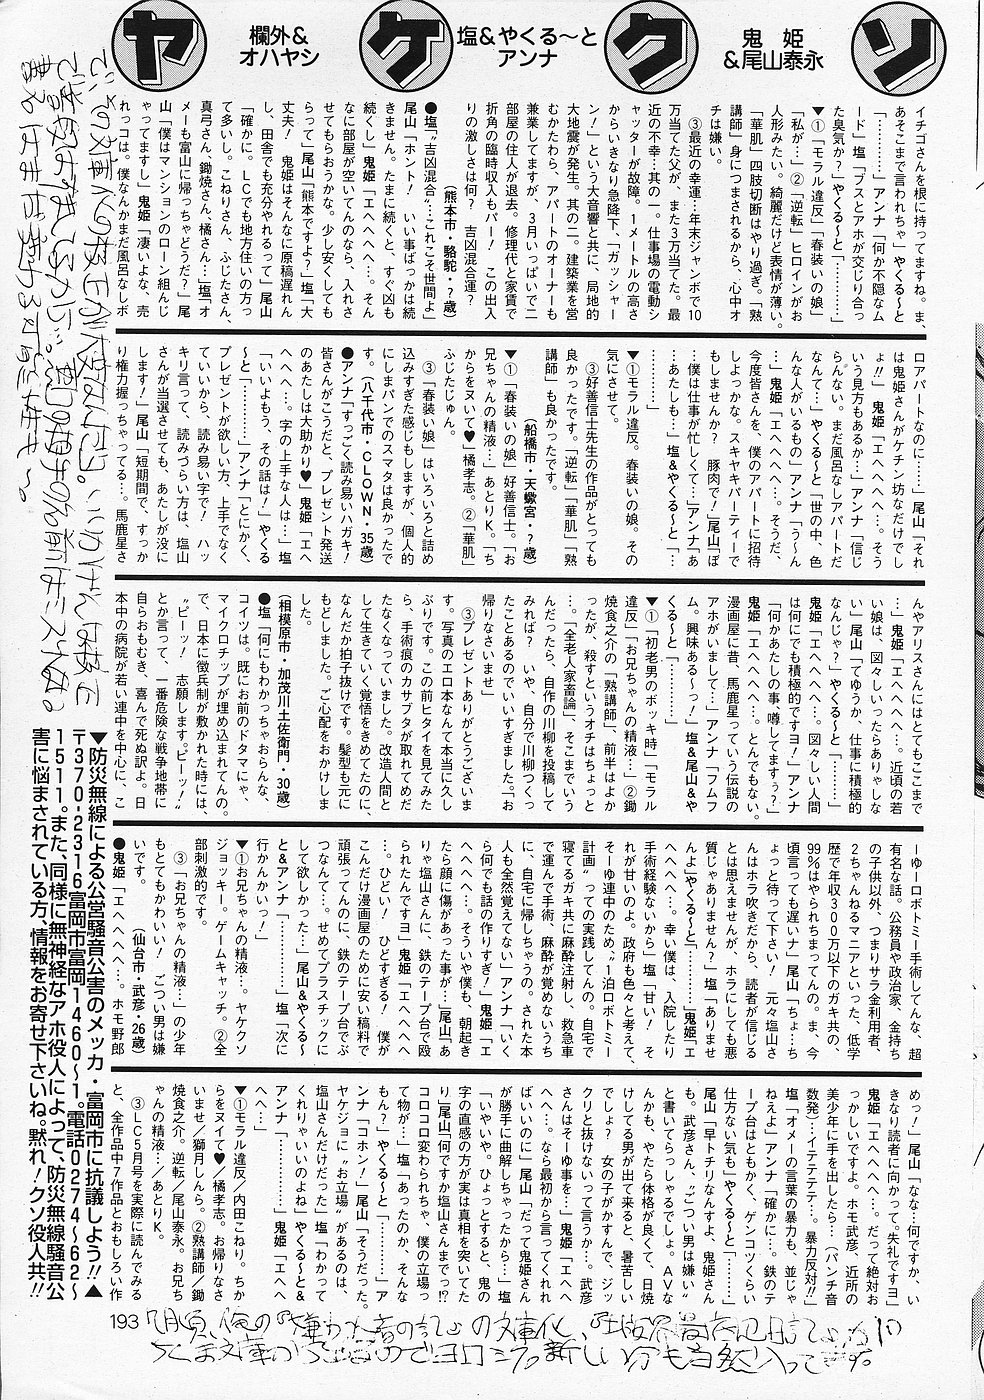 ヤ
欄外&
オハヤシ
ケ
塩&やくる〜と
アンナ
ク
鬼姫
&尾山泰永
ソ
イチゴさんを根に持ってますね。ま、
あそこまで言われちゃ」やくる〜と
「…………」アンナ「何か不穏なム
ード」塩「ブスとアホが交じり合っ
た臭気か?」やくる〜と「………」
▼①「モラル違反」「春装いの娘」
「私が…」②「逆転」ヒロインがお
人形みたい。綺麗だけど表情が薄い。
「華肌」四肢切断はやり過ぎ。「熟
講師」身につまされるから、心中オ
チは嫌い。
③最近の幸運…年末ジャンボで10
万当てた父が、また3万当てた。最
近の不幸…其の一。仕事場の電動シ
ャッターが故障。1メートルの高さ
からいきなり急降下、「ガッシャー
ン!」という大音響と共に、局地的
大地震が発生。其の二。建築業を営
むかたわら、アパートのオーナーも
兼業してますが、3月いっぱいで二
部屋の住人が退去。修理代と家賃で
折角の臨時収入もパー!この出入
りの激しさは何?吉凶混合運?
(熊本市・駱駝・?歳)
●塩「"吉凶混合"…これこそ世間よ」
尾山「ホント!いい事ばっかは続
きません。たまに続くと、すぐ凶も
続くし」鬼姫「エへへへへ…。そん
なに部屋が空いてんのなら、入れさ
せてもらおうかな。少し安くしても
らって」尾山「熊本ですよ?」塩「大
丈夫!鬼姫はそんなに原稿遅れん
し、田舎でも充分やれるって」尾山
「確かに。LCでも地方住いの方っ
て多いし。こねりさん、ふじたさん、
真弓さん、鋤焼さん、橘さん…」塩「オ
メーも富山に帰っちゃどうだ?」尾
山「僕はマンションのローン組んじ
ゃってますし」鬼姫「凄いよな、売
れっコは。僕なんかまだ風呂なしボ
ロアパートなのに……」尾山「それ
は鬼姫さんがケチン坊なだけでし
ょ!!」鬼姫「エへへへへ…。そう
いう見方もあるか…」アンナ「信じ
らんない。まだ風呂なしアパートだ
なんて…」やくる〜と「世の中、色
んな人がいるもの」アンナ「う〜ん
…」鬼姫「エへへへへ…。そうだ、
今度皆さんを、僕のアパートに招待
しよっかな。スキヤキパーティーで
もしませんか?豚肉で!」尾山「ぼ
…僕は仕事が忙しくて…」アンナ「あ
…あたしも…」塩&やくる〜と「…
………」
▼①モラル違反。春装いの娘。その
気にさせて。
③好善信士先生の作品がとっても
良かったです。「逆転」「華肌」「熟
講師」も良かったです。
(船橋市・天蠍宮・?歳)
▼①「春装いの娘」好善信士。「お
兄ちゃんの精液…」あとりK。「ち
からをヌいて♥」橘孝志。②「華肌」
ふじたじゅん。
③「春装い娘」はいろいろと詰め
込みすぎた感じもしますが、個人的
にしまパンでのスマタは良かったで
す。(八千代市・CLOWN・35歳)
●アンナ「すっごく読み易いハガキ!
皆さんがこうだと、プレゼント発送
のあたしは大助かり♥」鬼姫「エへ
へへへ…。字の上手な人は…」塩
「いいよもう、その話は!」やくる
〜と「………」アンナ「とにかく、
プレゼントが欲しい方、上手でなく
ていいから、読み易い字で!ハッ
キリ言って、読みづらい方は、塩山
さんが当選させても、あたしが没に
します!」尾山「短期間で、すっか
り権力握っちゃってる…。馬鹿星さ
んやアリスさんにはとてもここまで
…」鬼姫「エへへへへ…。近頃の若
い娘は、図々しいったらありゃしな
い」尾山「てゆうか、仕事に積極的
なんじゃ?」やくる〜と「………」
鬼姫「エへへへへ…。図々しい人間
は何にでも積極的ですヨ!」アンナ
「何かあたしの事、噂してますぅ?」
鬼姫「エへへへへ…。とんでもない。
漫画屋に昔、馬鹿星っていう伝説の
アホがいまして…」アンナ「フムフ
ム。興味ある〜っ!」塩&尾山&や
くる〜と「………」
▼①「初老男のボッキ時」「モラル
違反」「お兄ちゃんの精液…」②鋤
焼食之介の「熟講師」、前半はよか
ったが、殺すというオチはちょっと
…。「全老人家畜論」、そこまでいう
んだったら、自作の川柳を投稿して
みれば?いや、自分で川柳つくっ
たことあるのでいいすぎました。「お
帰りなさいませ」
③プレゼントありがとうございま
す。写真のエロ本なんて本当に久し
ぶりです。この前ヒタイを見てみた
ら、手術痕のカサブタが取れてめだ
たなくなっていました。改造人間と
して生きていく覚悟をきめてたのに
なんだか拍子抜けです。髪型も元に
もどしました。ご心配をおかけしま
した。
(相模原市・加茂川土佐衛門・30歳)
●塩「何にもわかっちゃおらんな、
コイツは。既にお前のドタマにゃ、
マイクロチップが埋め込まれてんの。
で、日本に徴兵制が敷かれた時には、
"ピーッ!志願します。ピーッ!"
とか言って、一番危険な戦争地帯に
自らおもむき、喜んで死ぬ訳よ。日
本中の病院が若い連中を中心に、こ
ーゆーロボトミー手術してんな、超
有名な話。公務員や政治家、金持ち
の子供以外、つまりサラ金利用者、
2ちゃんねるマニアといった、低学
歴で年収300万以下のガキ共の、
99%はやられちまってんの。ま、今
頃言っても遅いナ」尾山「ちょ…ち
ょっと待って下さい!元々塩山さ
んはホラ吹きだから、読者が信じる
とは思えませんが、ホラにしても悪
質じゃありません?」塩「ありませ
んよ」やくる〜と「………」鬼姫「エ
へへへへ…。幸い僕は、入院したり
手術経験ないから」塩「甘い!そ
れが甘いのよ。政府も色々と考えて、
そーゆ連中のため、"1泊ロボトミー
計画"っての実践してんの。自宅で
寝てるガキ共に麻酔注射し、救急車
で運んで手術、麻酔が覚めないうち
に、自宅に帰しちゃうの。された本
人も全然覚えてない」アンナ「いく
ら何でも話の作りすぎ!」鬼姫「エ
へへへへ…。そういや僕も、朝起き
たら顔に傷があった事が…」尾山「あ
りゃ塩山さんに、鉄のテープ台で殴
られたんですヨ」鬼姫「エへへへへ
…。ひどい!ひどすぎる!僕が
こんだけ漫画屋のために安い稿料で
頑張ってんのに、鉄のテープ台でぶ
つなんて…。せめてプラスチックに
して欲しかった…」尾山&やくる〜
と&アンナ「………」塩「次に
行かんかいっ!」
▼①お兄ちゃんの精液…。ヤケクソ
ジョッキー。ゲームキャッチ。②全
部刺激的です。
③「お兄ちゃんの精液…」の少年
もとてもかわいい!ごつい男は嫌
いです。(仙台市・武彦・26歳)
●鬼姫「エへへへへ…。ホモ野郎
めっ!」尾山「なな…何ですか、い
きなり読者に向かって。失礼ですヨ」
鬼姫「エへへへへ…。だって絶対お
っかしいですよ。ホモ武彦、近所の
美少年に手を出したら…(バンチ音
数発)…イテテテテ…。暴力反対!!」
塩「オメーの言葉の暴力も、並じゃ
ねえよ」アンナ「確かに…。鉄のテ
ープ台はともかく、ゲンコツくらい
仕方ない気も」やくる〜と「………」
尾山「早トチリなんすよ、鬼姫さん
も。武彦さん、"ごつい男は嫌い"
と書いてらっしゃるでしょ。AVな
んかも、やたら体格が良くて、日焼
けしてる男が出て来ると、暑苦しい
でしょ?女の子がかすんで、ジッ
クリと抜けないって言うか…。武彦
さんはそーゆ事を…」鬼姫「エへへ
へへ…。なら最初から言ってくれれ
ばいいのに」尾山「だって鬼姫さん
が勝手に曲解しちゃったから…」塩
「いやいや。ひょっとすると、鬼の
字の直感の方が実は真相を突いてた
り」尾山「何ですか塩山さんまで!?
コロコロ変わられちゃ、僕の立場っ
て物が…」塩「あったのか、そんな
もん?」やくる〜と「………」ア
ンナ「コホン!」尾山「そうだった。
ヤケジョに"お立場"があるのは、
塩山さんだけだった」塩「わかって
くれりゃいいのよね」やくる〜と&
アンナ「………」鬼姫「エへへ
へへ…」
▼①モラル違反/内田こねり。ちか
らをヌイて♥/橘孝志。お帰りなさ
いませ/獅月しんら。②熟講師/鋤
焼食之介。逆転/尾山泰永。お兄ち
ゃんの精液…/あとりK。
③LC5月号を実際に読んでみる
と、全作品中7作品とおもしろい作
▼防災無線による公営騒音公害のメッカ・富岡市に抗議しよう!!▲
〒370-2316富岡市富岡1460〜1。電話0274〜62〜
1511。また、同様に無神経なアホ役人によって、防災無線騒音公
害に悩まされている方、情報をお寄せ下さいね。黙れ!クソ役人共!!
193